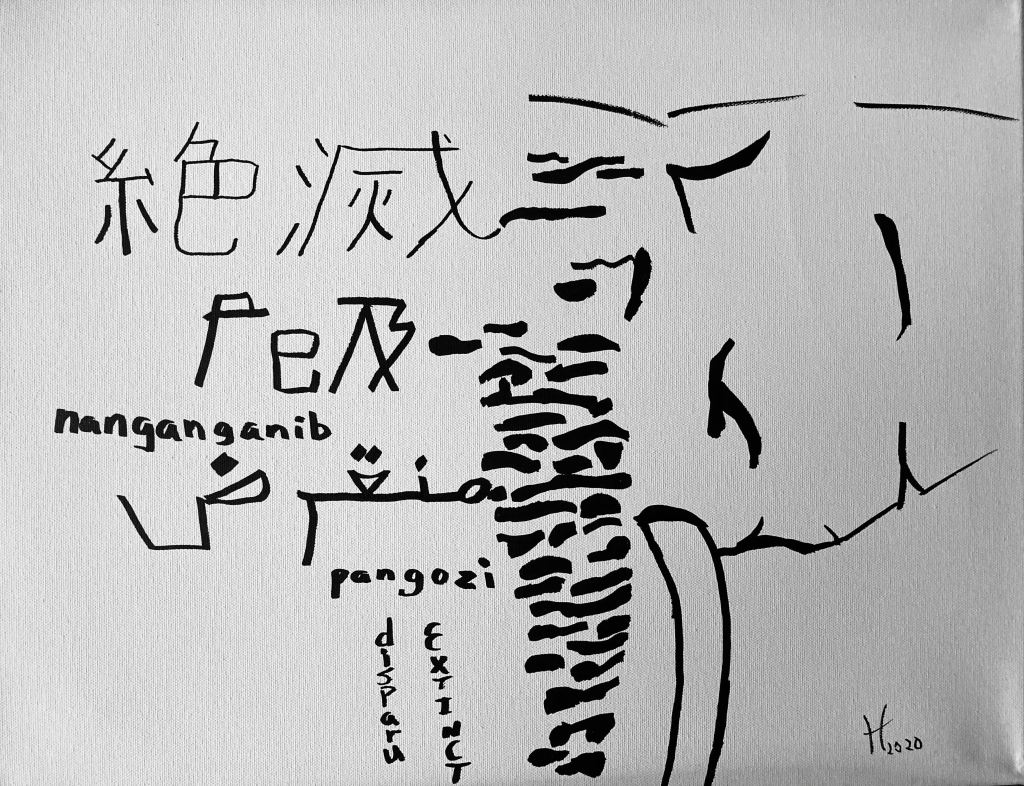 絶滅
危及
nanganganib
منقرض
pangozi
disparu
ExTINCT
H 2020